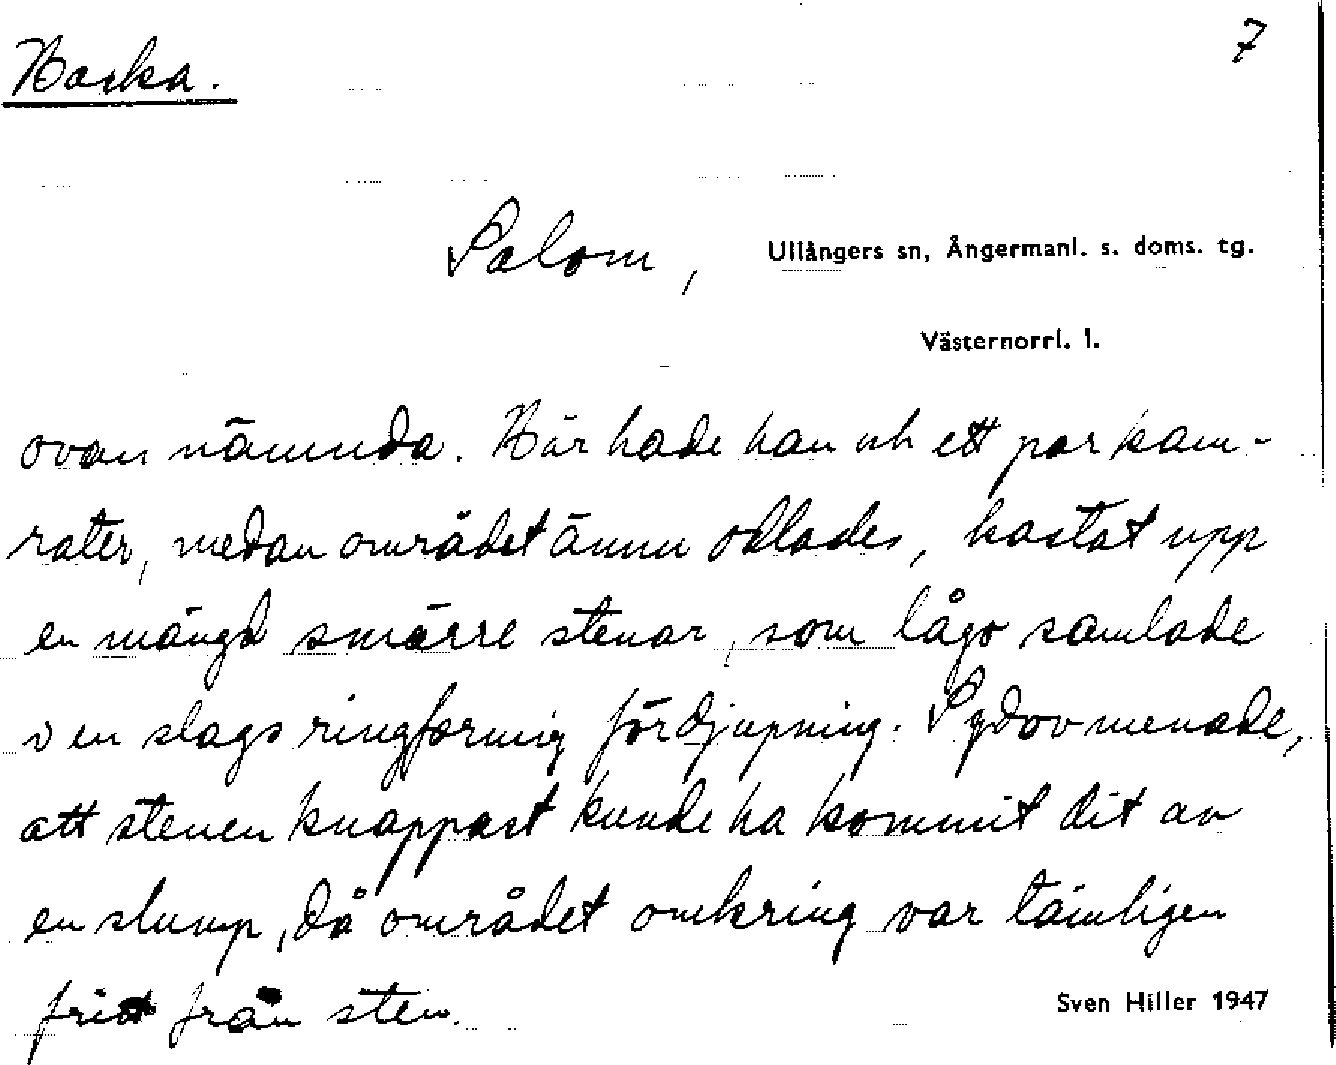 7
Harka.
Salom, Ullångers sn, Ångermanl. s. doms. tg.
Västernorrl. l.
ovan nämnda. Här hade han och ett par kam-
rater, medan området ännu odlades, kastat upp
en mängd smärre stenar, som lågo samlade
i en slags ringformig fördjupning. Sydov menade,
att stenen knappast kunde ha kommit dit av
en slump, då området omkring var tämligen
fritt från sten.
Sven Hiller 1947